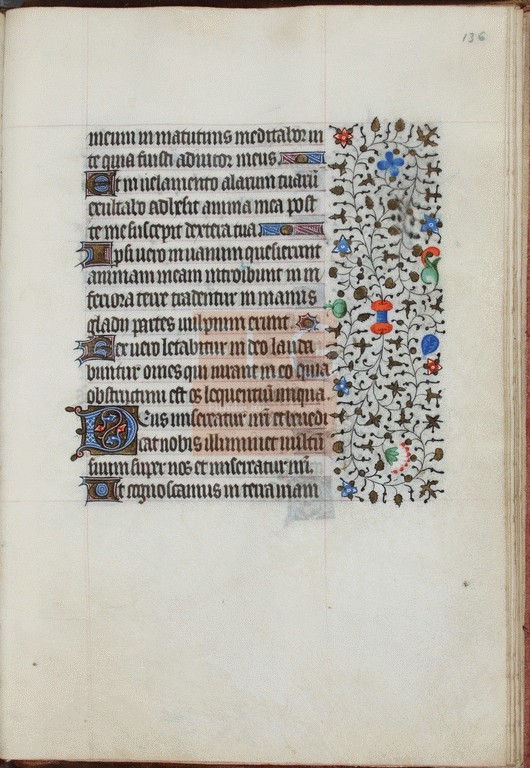 136
meum in matutinis meditabor in
te quia fuisti adiutor meus
Et in uelamento alarum tuarū
exultabo adhesit anima mea post
te me suscepit dextera tua
Ipsi uero in uanum quesierunt
animam meam introibunt in in
feriora terre tradentur in manus
gladii partes uulpium erunt.
Rex uero letabitur in deo lauda
buntur omēs qui iurant in eo quia
obstructum est os loquentiū iniqua.
Deus misereatur nr̄i et benedi
cat nobis illuminet uultū
suum super nos et misereatur nr̄i.
Ut cognoscamus in terra uiam